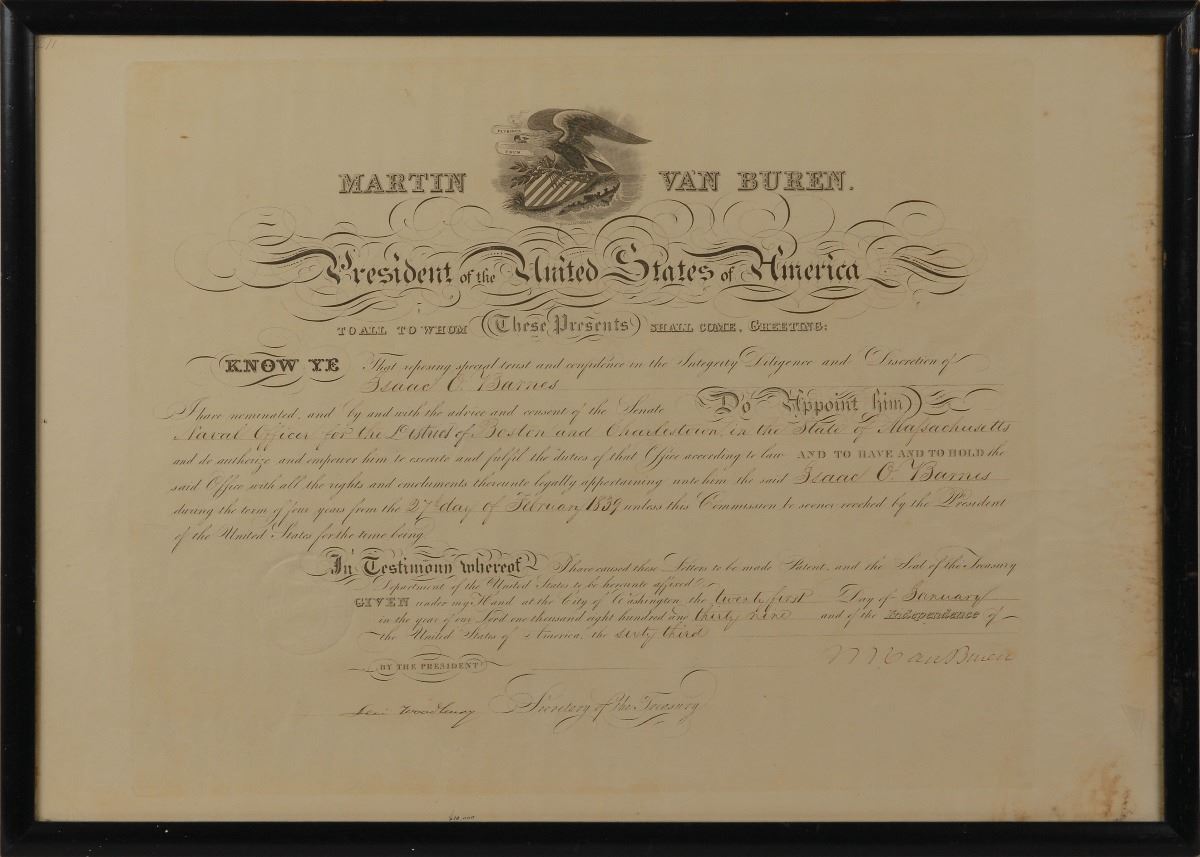 PLURIBUS
UNUM
MARTIN VAN BUREN.
President of the United States of America
TO ALL TO WHOM These Presents SHALL COME, GREETING:
KNOW YE That reposing special trust and confidence in the Integrity Diligence and Discretion of
Isaac O. Barnes
I have nominated, and by and with the advice and consent of the Senate Do Appoint him
Naval Officer for the District of Boston and Charlestown, in the State of Massachusetts
and do authorize and empower him to execute and fulfil the duties of that Office according to law AND TO HAVE AND TO HOLD the
said Office with all the rights and emoluments thereunto legally appertaining unto him the said Isaac O. Barnes
during the term of four years from the 27th day of February 1839 unless this Commission be sooner revoked by the President
of the United States for the time being.
In Testimony whereof I have caused these Letters to be made Patent, and the Seal of the Treasury
Department of the United States to be hereunto affixed
GIVEN under my Hand at the City of Washington the twenty first Day of January
in the year of our Lord one thousand eight hundred and thirty nine and of the Independence of
the United States of America, the sixty third
M Van Buren
BY THE PRESIDENT
Levi Woodbury Secretary of the Treasury